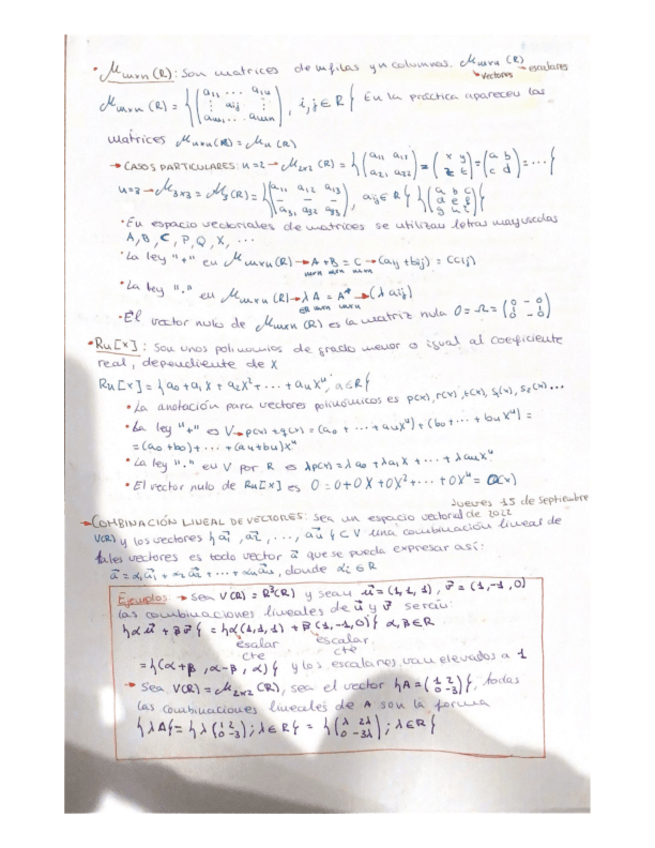 • Mmxn (R): Son matrices de m filas y n columnas. Mmxn (R)
vectores escalares
Mmxn (R) = {(a11 ... a1n ⋮ aij ⋮ am1 ... amn), i,j ∈ R} En la práctica aparecen las
matrices Mnxn(R) = Mn (R)
→ CASOS PARTICULARES: n=2 → M2x2 (R) = {(a11 a12 a21 a22) = (x y z t) = (a b c d) = ...}
n=3 → M3x3 = M3(R) = {(a11 a12 a13 - - - a31 a32 a33), aij ∈ R} {(a b c d e f g h i)}
• En espacio vectoriales de matrices se utilizan letras mayusculas
A, B, C, P, Q, X, ...
• La ley "+" en Mmxn (R) → A + B = C → (aij + bij) = (cij)
mxn mxn mxn
• La ley "." en Mmxn (R) → λ A = A* → (λ aij)
∈R mxn mxn
• El vector nulo de Mmxn (R) es la matriz nula 0 = Ω = (0 - 0 0 - 0)
• Rn[x]: Son unos polinomios de grado menor o igual al coeficiente
real, dependiente de x
Rn[x] = {a0 + a1 x + a2x² + ... + anxⁿ, a ∈ R}
• La anotación para vectores polinómicos es p(x), r(x), t(x), s1(x), s2(x)...
• La ley "+" es V → p(x) + q(x) = (a0 + ... + anxⁿ) + (b0 + ... + bn xⁿ) =
= (a0 + b0) + ... + (an+bn)xⁿ
• La ley "." en V por R es λp(x) = λa0 + λa1 x + ... + λanxⁿ
• El vector nulo de Rn[x] es 0 = 0 + 0 x + 0x² + ... + 0xⁿ = 0(x)
Jueves 15 de Septiembre
de 2022
→ COMBINACIÓN LINEAL DE VECTORES: Sea un espacio vectorial
V(R) y los vectores {a1, a2, ..., an} ⊂ V una combinación lineal de
tales vectores es todo vector a que se pueda expresar así:
a = α1a1 + α2a2 + ... + αnan, donde αi ∈ R
Ejemplos: → Sea V(R) = R³(R) y sean u = (1, 1, 1), v = (1, -1, 0)
las combinaciones lineales de u y v serán:
{αu + βv} = {α(1, 1, 1) + β(1, -1, 0)} α, β ∈ R
esalar escalar
cte cte
= {(α+β, α-β, α)} y los escalares van elevados a 1
→ Sea V(R) = M2x2 (R), sea el vector {A = (1 2 0 -3)}, todas
las combinaciones lineales de A son la forma
{λA} = {λ(1 2 0 -3); λ∈R} = {(λ 2λ 0 -3λ); λ∈R}